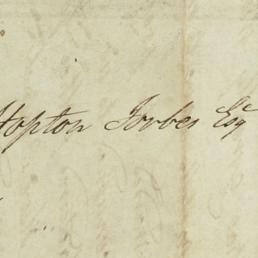 Hopton Forbes Esq